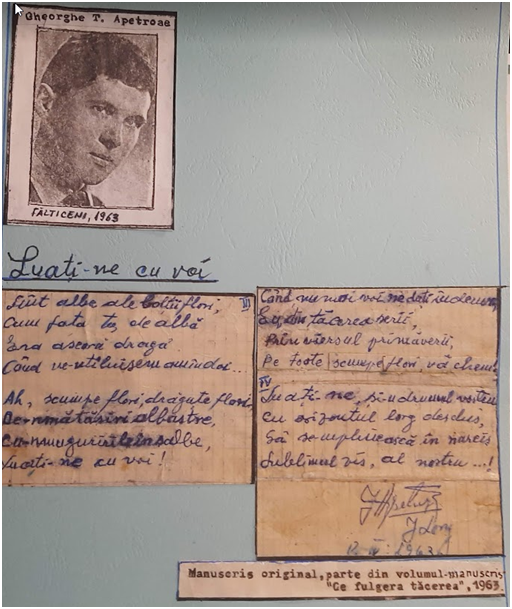 Gheorghe T. Apetroae
FĂLTICENI, 1963
Luați-ne cu voi
Sînt albe ale bolții flori,
Cum fața ta, de albă
Era aseară dragă
Când ne-ntîlnisem amîndoi...
Ah, scumpe flori, drăguțe flori,
De-nmătăsiri albastre,
Cu-nmuguriri în salbe,
Luați-ne cu voi!
III
Când nu mai voi ne dați
Eu, din tăcerea serii,
Prin viersul primăverii,
Pe toate scumpe flori vă chem
IV
Luați-ne, și-n drumul vostru
Cu orizontul larg deschis,
Să se-mplinească în
Sublimul vis, al nostru...!
IV. 1963
Manuscris original, parte din volumul-manuscris
"Ce fulgera tăcerea", 1963